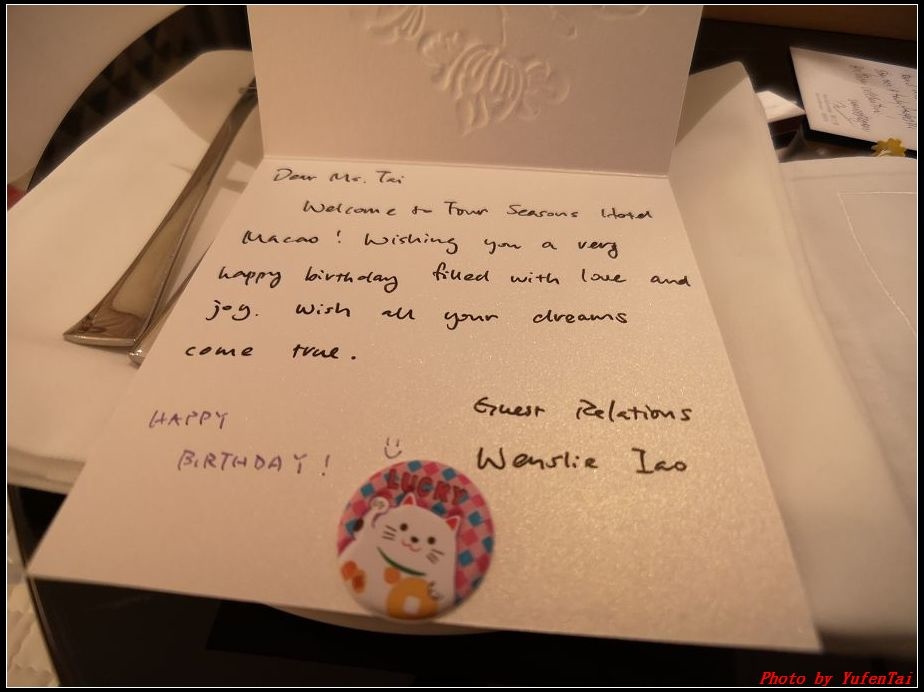 Dear Ms. Tai
Welcome to Four Seasons Hotel
Macao! Wishing you a very
happy birthday filled with love and
joy. Wish all your dreams
come true.
Guest Relations
Wenslie Iao
HAPPY
BIRTHDAY!
LUCKY
Photo by YufenTai